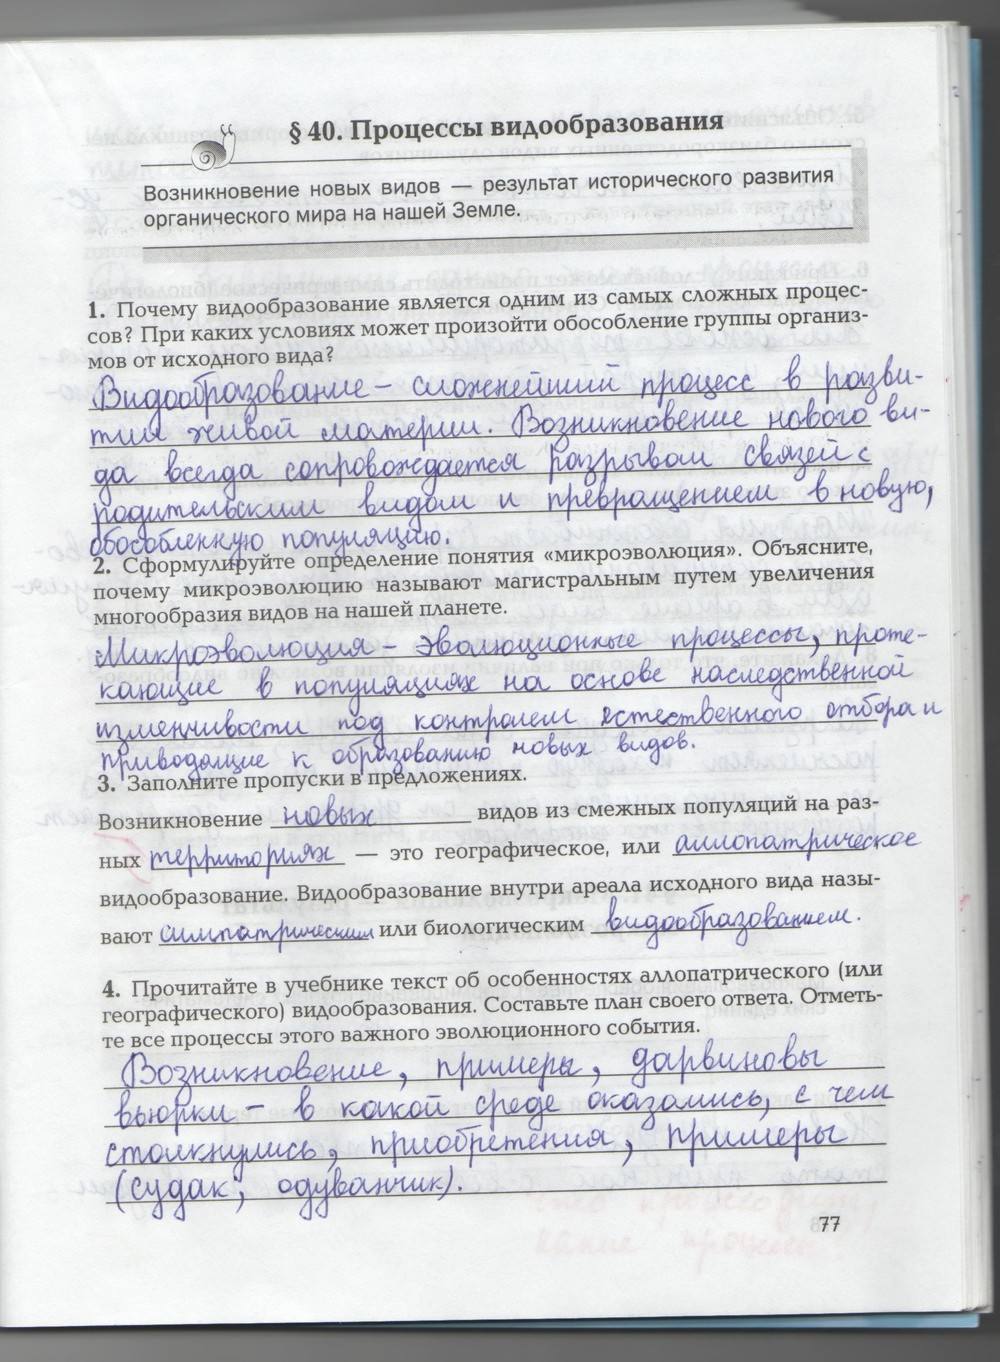 § 40. Процессы видообразования
Возникновение новых видов — результат исторического развития
органического мира на нашей Земле.
1. Почему видообразование является одним из самых сложных процес-
сов? При каких условиях может произойти обособление группы организ-
мов от исходного вида?
Видообразование – сложнейший процесс в разви-
тии живой материи. Возникновение нового ви-
да всегда сопровождается разрывом связей с
родительским видом и превращением в новую,
обособленную популяцию.
2. Сформулируйте определение понятия «микроэволюция». Объясните,
почему микроэволюцию называют магистральным путем увеличения
многообразия видов на нашей планете.
Микроэволюция – эволюционные процессы, проте-
кающие в популяциях на основе наследственной
изменчивости под контролем естественного отбора и
приводящие к образованию новых видов.
3. Заполните пропуски в предложениях.
Возникновение новых видов из смежных популяций на раз-
ных территориях — это географическое, или аллопатрическое
видообразование. Видообразование внутри ареала исходного вида назы-
вают симпатрическим или биологическим видообразованием.
4. Прочитайте в учебнике текст об особенностях аллопатрического (или
географического) видообразования. Составьте план своего ответа. Отметь-
те все процессы этого важного эволюционного события.
Возникновение, примеры, дарвиновы
вьюрки – в какой среде оказались, с чем
столкнулись, приобретения, примеры
(судак; одуванчик).
77